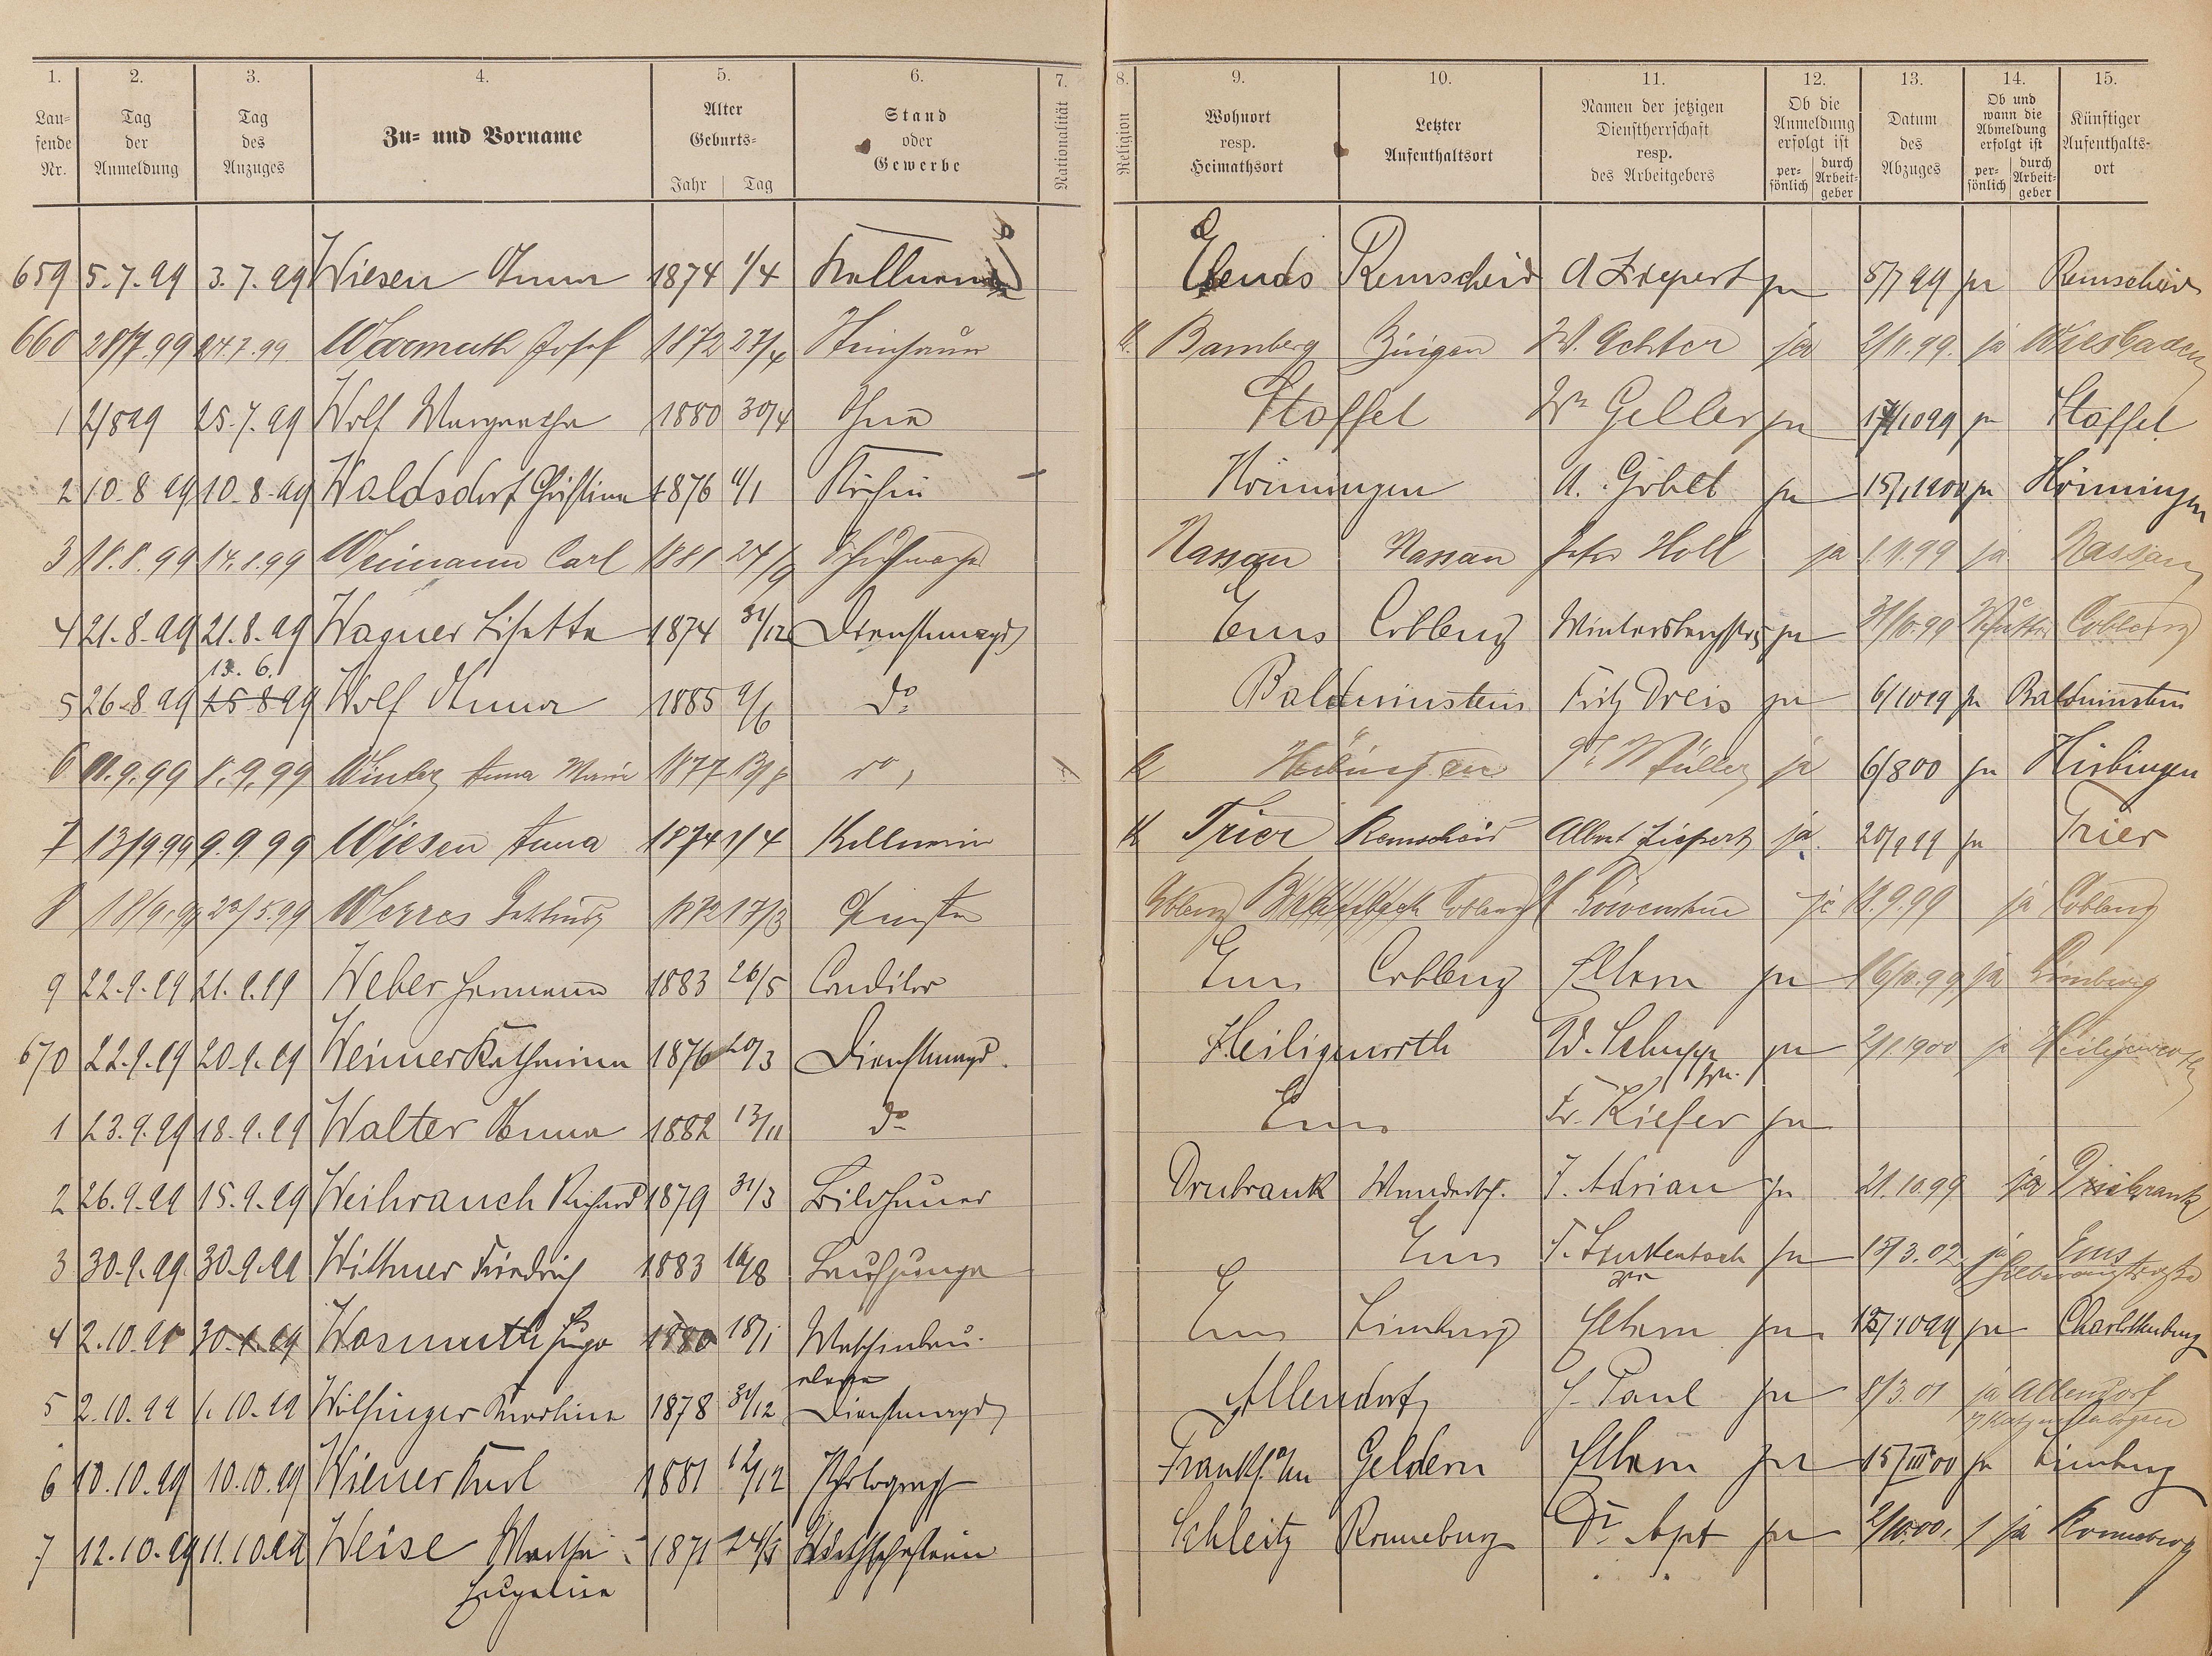 1. 2. 3. 4. 5. 6. 7. 8. 9. 10. 11. 12. 13. 14. 15.
Lau-
fende
Nr.
Tag
der
Anmeldung
Tag
des
Anzuges
Zu- und Vorname
Alter
Geburts-
Jahr Tag
Stand
oder
Gewerbe
Nationalität
Religion
Wohnort
resp.
Heimathsort
Letzter
Aufenthaltsort
Namen der jetzigen
Dienstherrschaft
resp.
des Arbeitgebers
Ob die
Anmeldung
erfolgt ist
per-
sönlich
durch
Arbeit-
geber
Datum
des
Abzuges
Ob und
wann die
Abmeldung
erfolgt ist
per-
sönlich
durch
Arbeit-
geber
Künftiger
Aufenthalts-
ort
659 5.7.99 3.7.99 Wiesen Anna 1874 1/4 Kellnerin Remscheid ja 5/7 99 ja Remscheid
660 28/7.99 24.7.99 Warmuth Josef 1872 27/4 Steinhauer K. Bamberg Bingen W. Achter ja 2/11.99. ja Wiesbaden
1 2/8 99 25.7.99 Wolf Margarethe 1880 30/4 Ohne Staffel Wwe Geller ja 17/10 99 ja Staffel
2 10.8 99 10.8.99 Waldsdorf Christine 1876 Köchin Hönningen A. Göbel ja 15/1 1900 ja Hönningen
3 18.8.99 14.8.99 Weimann Carl 1881 24/9 Schuhmacher Nassau Nassau Peter Holl ja 1.11.99 ja Nassau
4 21.8.99 21.8.99 Wagner Lisette 1874 31/12 Dienstmagd Ems Coblenz ja 31/10.99 Mutter Coblenz
13. 6.
5 26.8 99 25 8 99 Wolf Anna 1885 9/6 do Balduinstein Fritz Dreis ja 6/10 99 ja Balduinstein
6 11.9.99 8.9.99 Anna Maria 1877 do, K Müller ja 6/8 00 ja Hirbingen
7 13/9 99 9.9.99 Wiesen Anna 1874 1/4 Kellnerin K Trier Remscheid Albert Ziepert ja 20/9 99 ja Trier
8 18/9.99 22/5.99 Werres 1872 17/3 Coblenz Coblenz Löwenstein ja 18.9.99 ja Coblenz
9 22.9.99 21.9.99 Weber Hermann 1883 26/5 Conditor Ems Coblenz Eltern ja 16/10.99 ja Limburg
670 22.9.99 20.9.99 Weimer Katharina 1876 20/3 Dienstmagd. Heiligenroth W. Schupp ja 2/1.1900 ja Heiligenroth
1 23.9.99 18.9.99 Walter Anna 1882 13/11 do Ems Fr. Kiefer ja
2 26.9.99 15.9.99 Weihrauch Richard 1879 31/3 Bildhauer Wanderbf. J. Adrian ja 21.10.99 ja
3 30.9.99 30.9.99 Wittmer Friedrich 1883 Laufjunge Ems ja 15/3.02 ja Ems
4 2.10.99 30.9.99 Wasmuth Hugo 1880 18/1 Maschinbau- Ems Limburg Eltern ja 15/10 99 ja Charlottenburg
eleve
5 2.10.99 1.10.99 Wilfinger Karoline 1878 31/12 Dienstmagd Allendorf J. Paul ja 8/3.01 ja Allendorf
6 10.10.99 10.10.99 Wiener Karl 1881 12/12 Photograph Frankf. a/M Geldern Eltern ja 15/III 00 ja Limburg
7 12.10.99 11.10.99 Weise Martha 1871 Wirthschafterin Schleitz Ronneburg Dr. Apt ja 2/10.00. ja Ronneburg